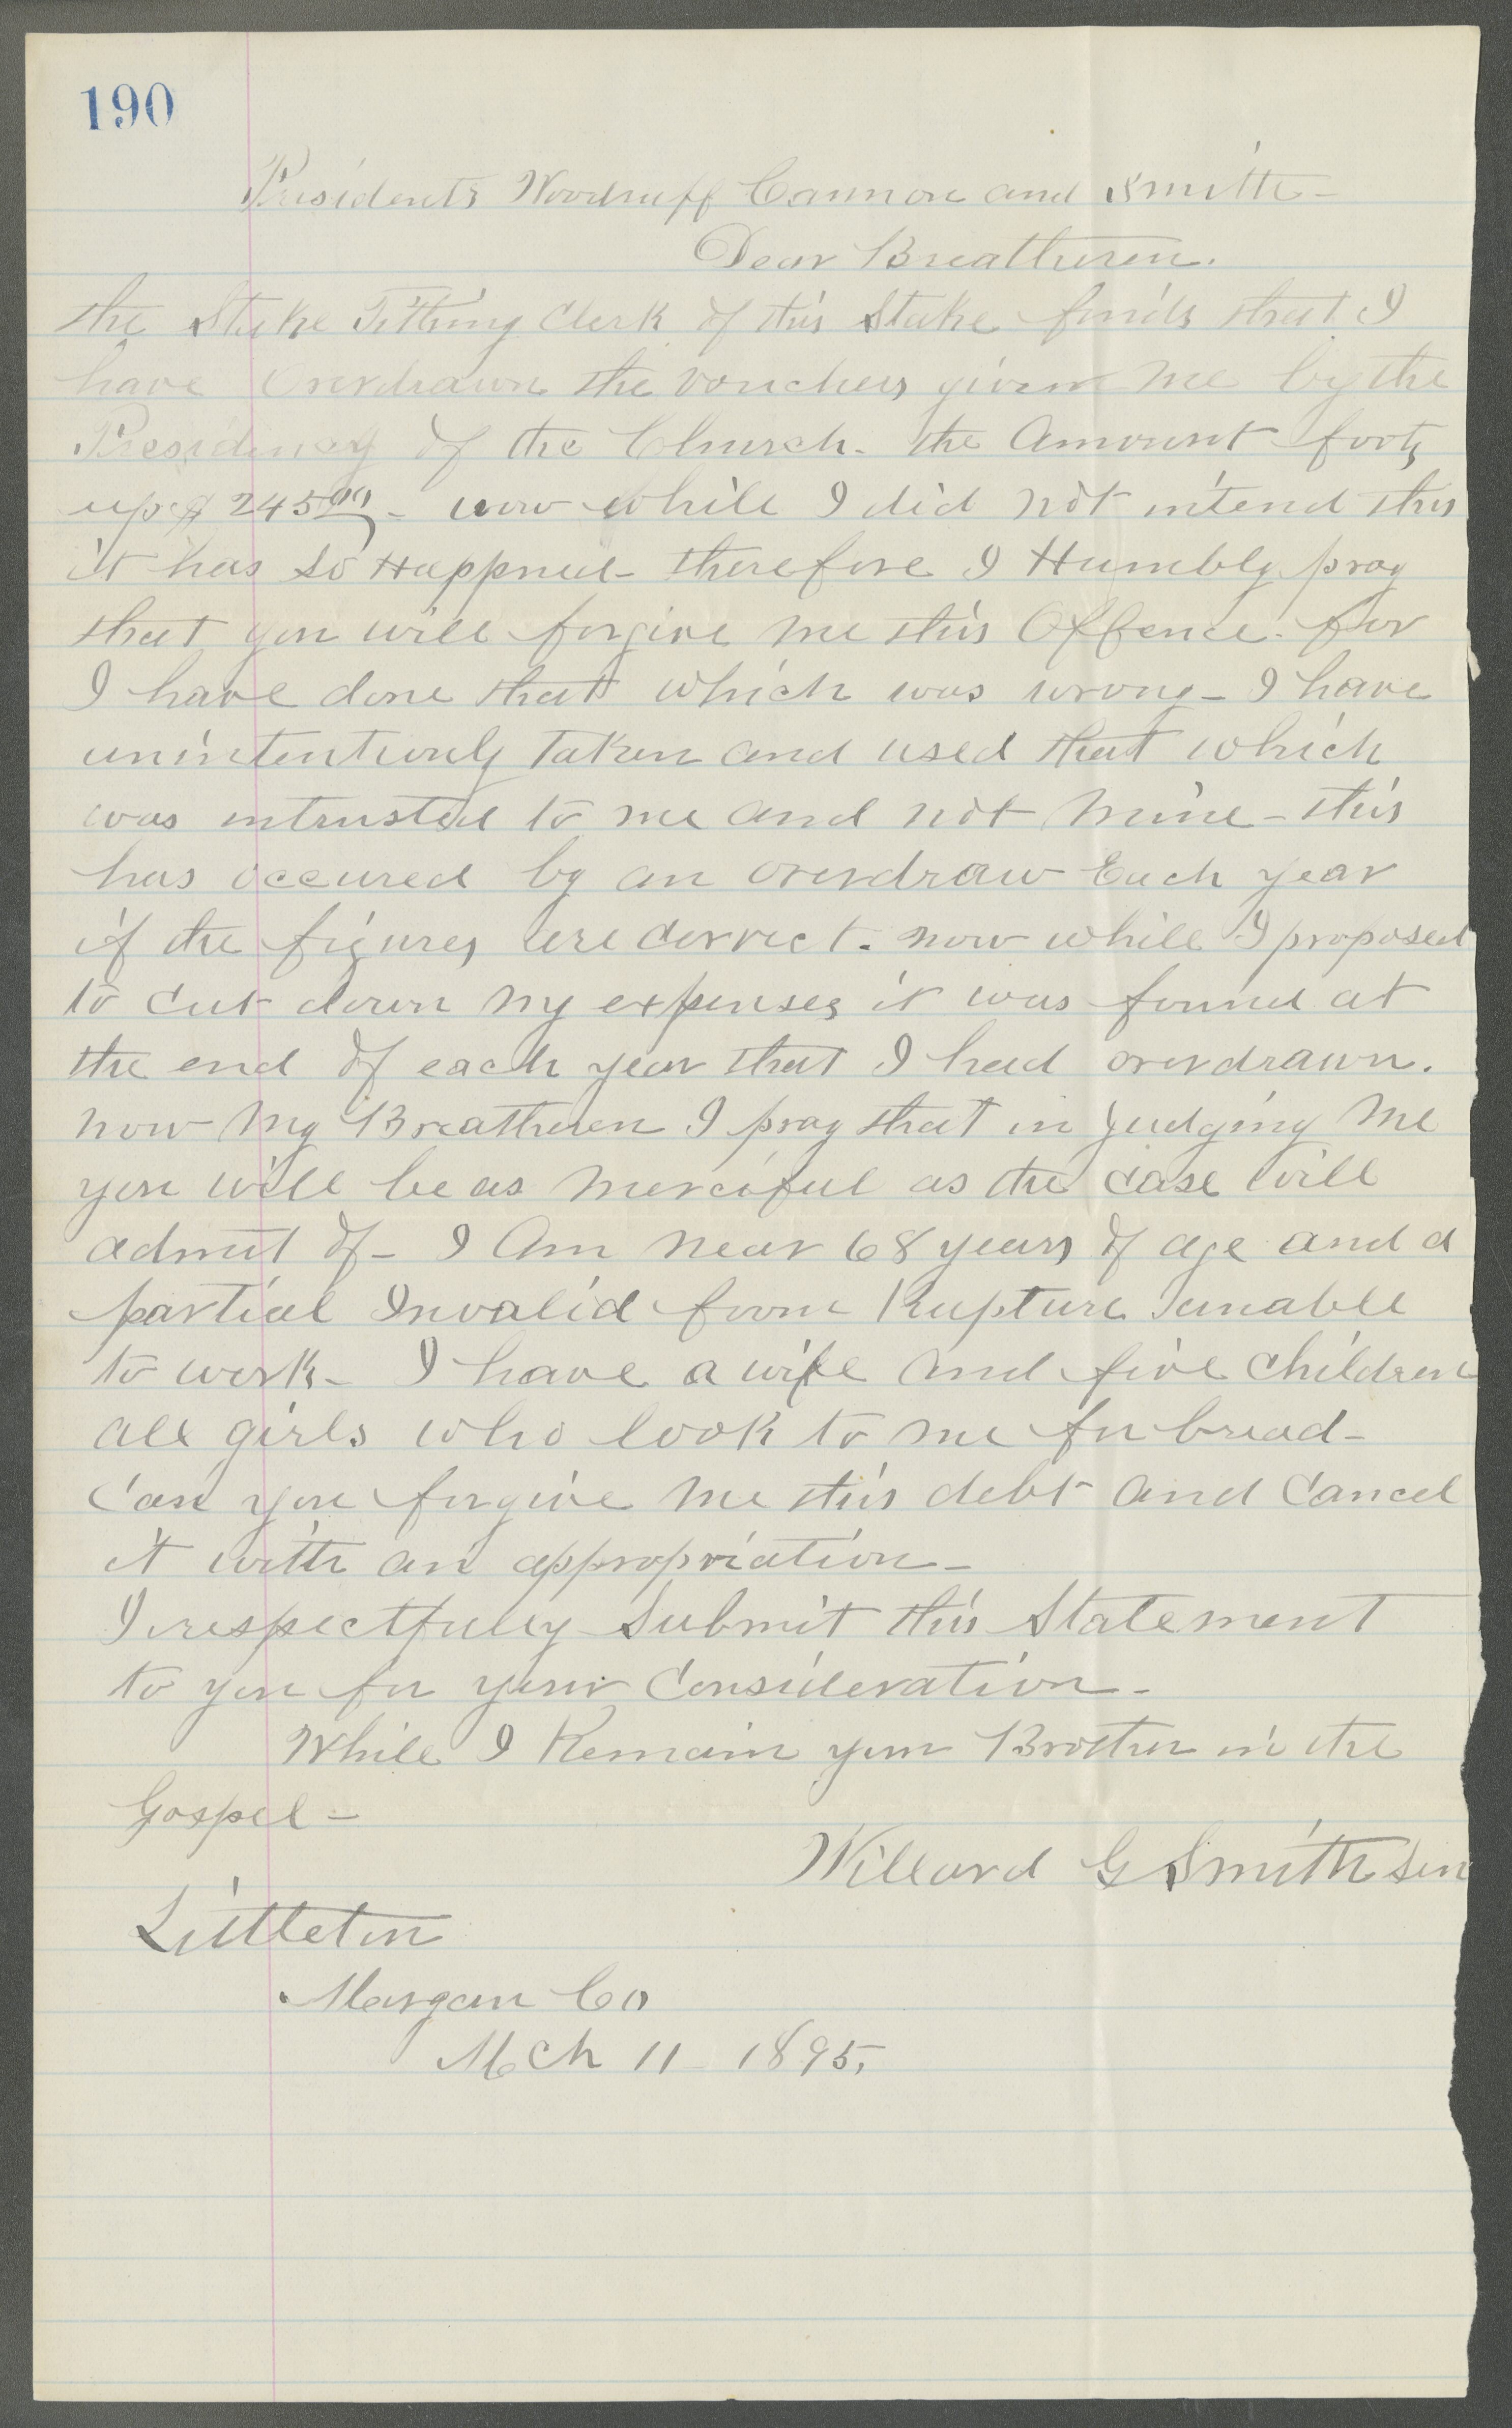 190
Presidents Woodruff Cannon and Smith -
Dear Breatheren.
the Stake Tithing Clerk of this Stake finds that I
have overdrawn the vouchers given me by the
Presidency of the Church. the Amount foots
up $ 245 00 - now while I did not intend this
it has so Happned - therefore I Humbly pray
that you will forgive me this Offence. for
I have done that which was wrong - I have
unintentionly taken and used that which
was intrusted to me and not mine - this
has occured by an overdraw Each year
if the figures are correct. now while I proposed
to cut down my expenses it was found at
the end of each year that I had overdrawn.
now my Breatheren I pray that in judging me
you will be as merciful as the case will
admit of - I Am near 68 years of age and a
partial Invalid from Rupture unable
to work - I have a wife and five children
all girls who look to me for bread -
Can you forgive me this debt and Cancel
it with an appropriation -
I respectfully Submit this Statement
to you for your Consideration -
While I Remain your Brother in the
Gospel -
Willard G Smith Sen
Littleton
Morgan Co
Mch 11 - 1895.